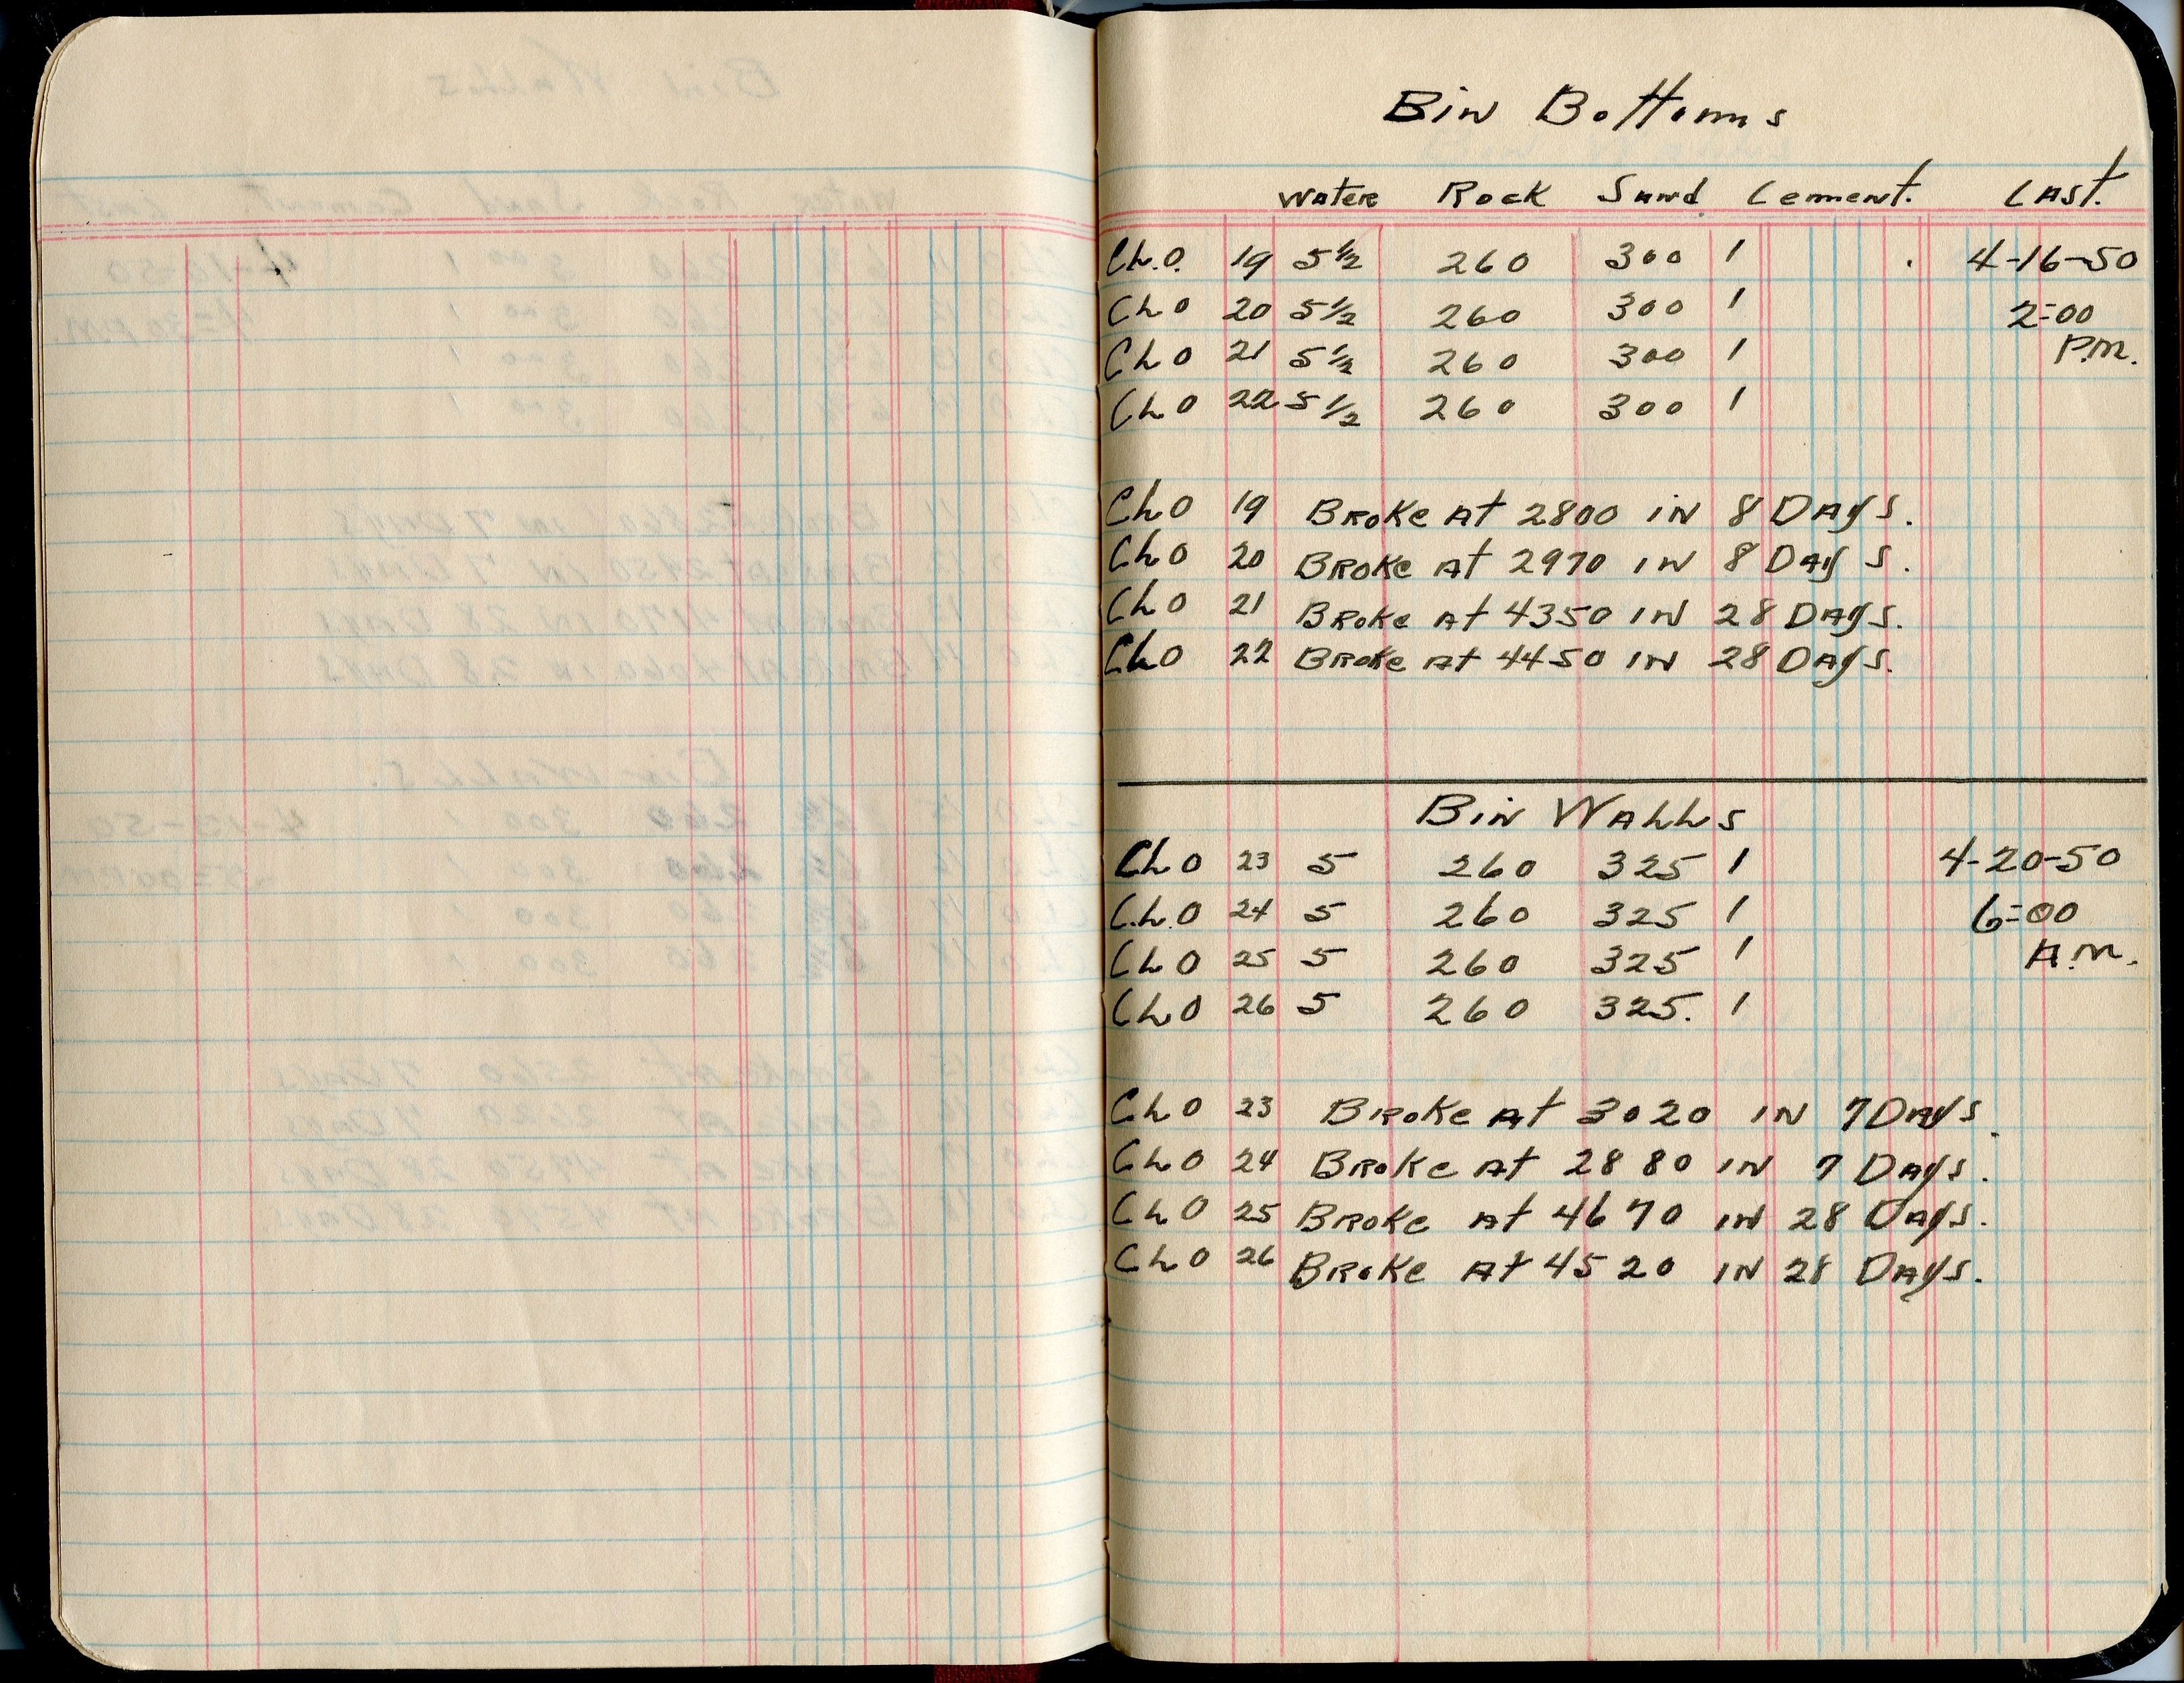 Bin Bottoms
Water Rock Sand Cement. Cast.
Ch.O. 19 5 1/2 260 300 1 4-16-50
Ch O 20 5 1/2 260 300 1 2:00
Ch O 21 5 1/2 260 300 1 P.M.
Ch O 22 5 1/2 260 300 1
Ch O 19 Broke At 2800 in 8 Days.
Ch O 20 Broke At 2970 in 8 Days.
Ch O 21 Broke At 4350 in 28 Days.
Ch O 22 Broke At 4450 in 28 Days.
Bin Walls
Ch O 23 5 260 325 1 4-20-50
C.h.O 24 5 260 325 1 6:00
Ch O 25 5 260 325 1 A.M.
Ch O 26 5 260 325. 1
Ch O 23 Broke At 3020 in 7 Days.
Ch O 24 Broke At 2880 in 7 Days.
Ch O 25 Broke At 4670 in 28 Days.
Ch O 26 Broke At 4520 in 28 Days.